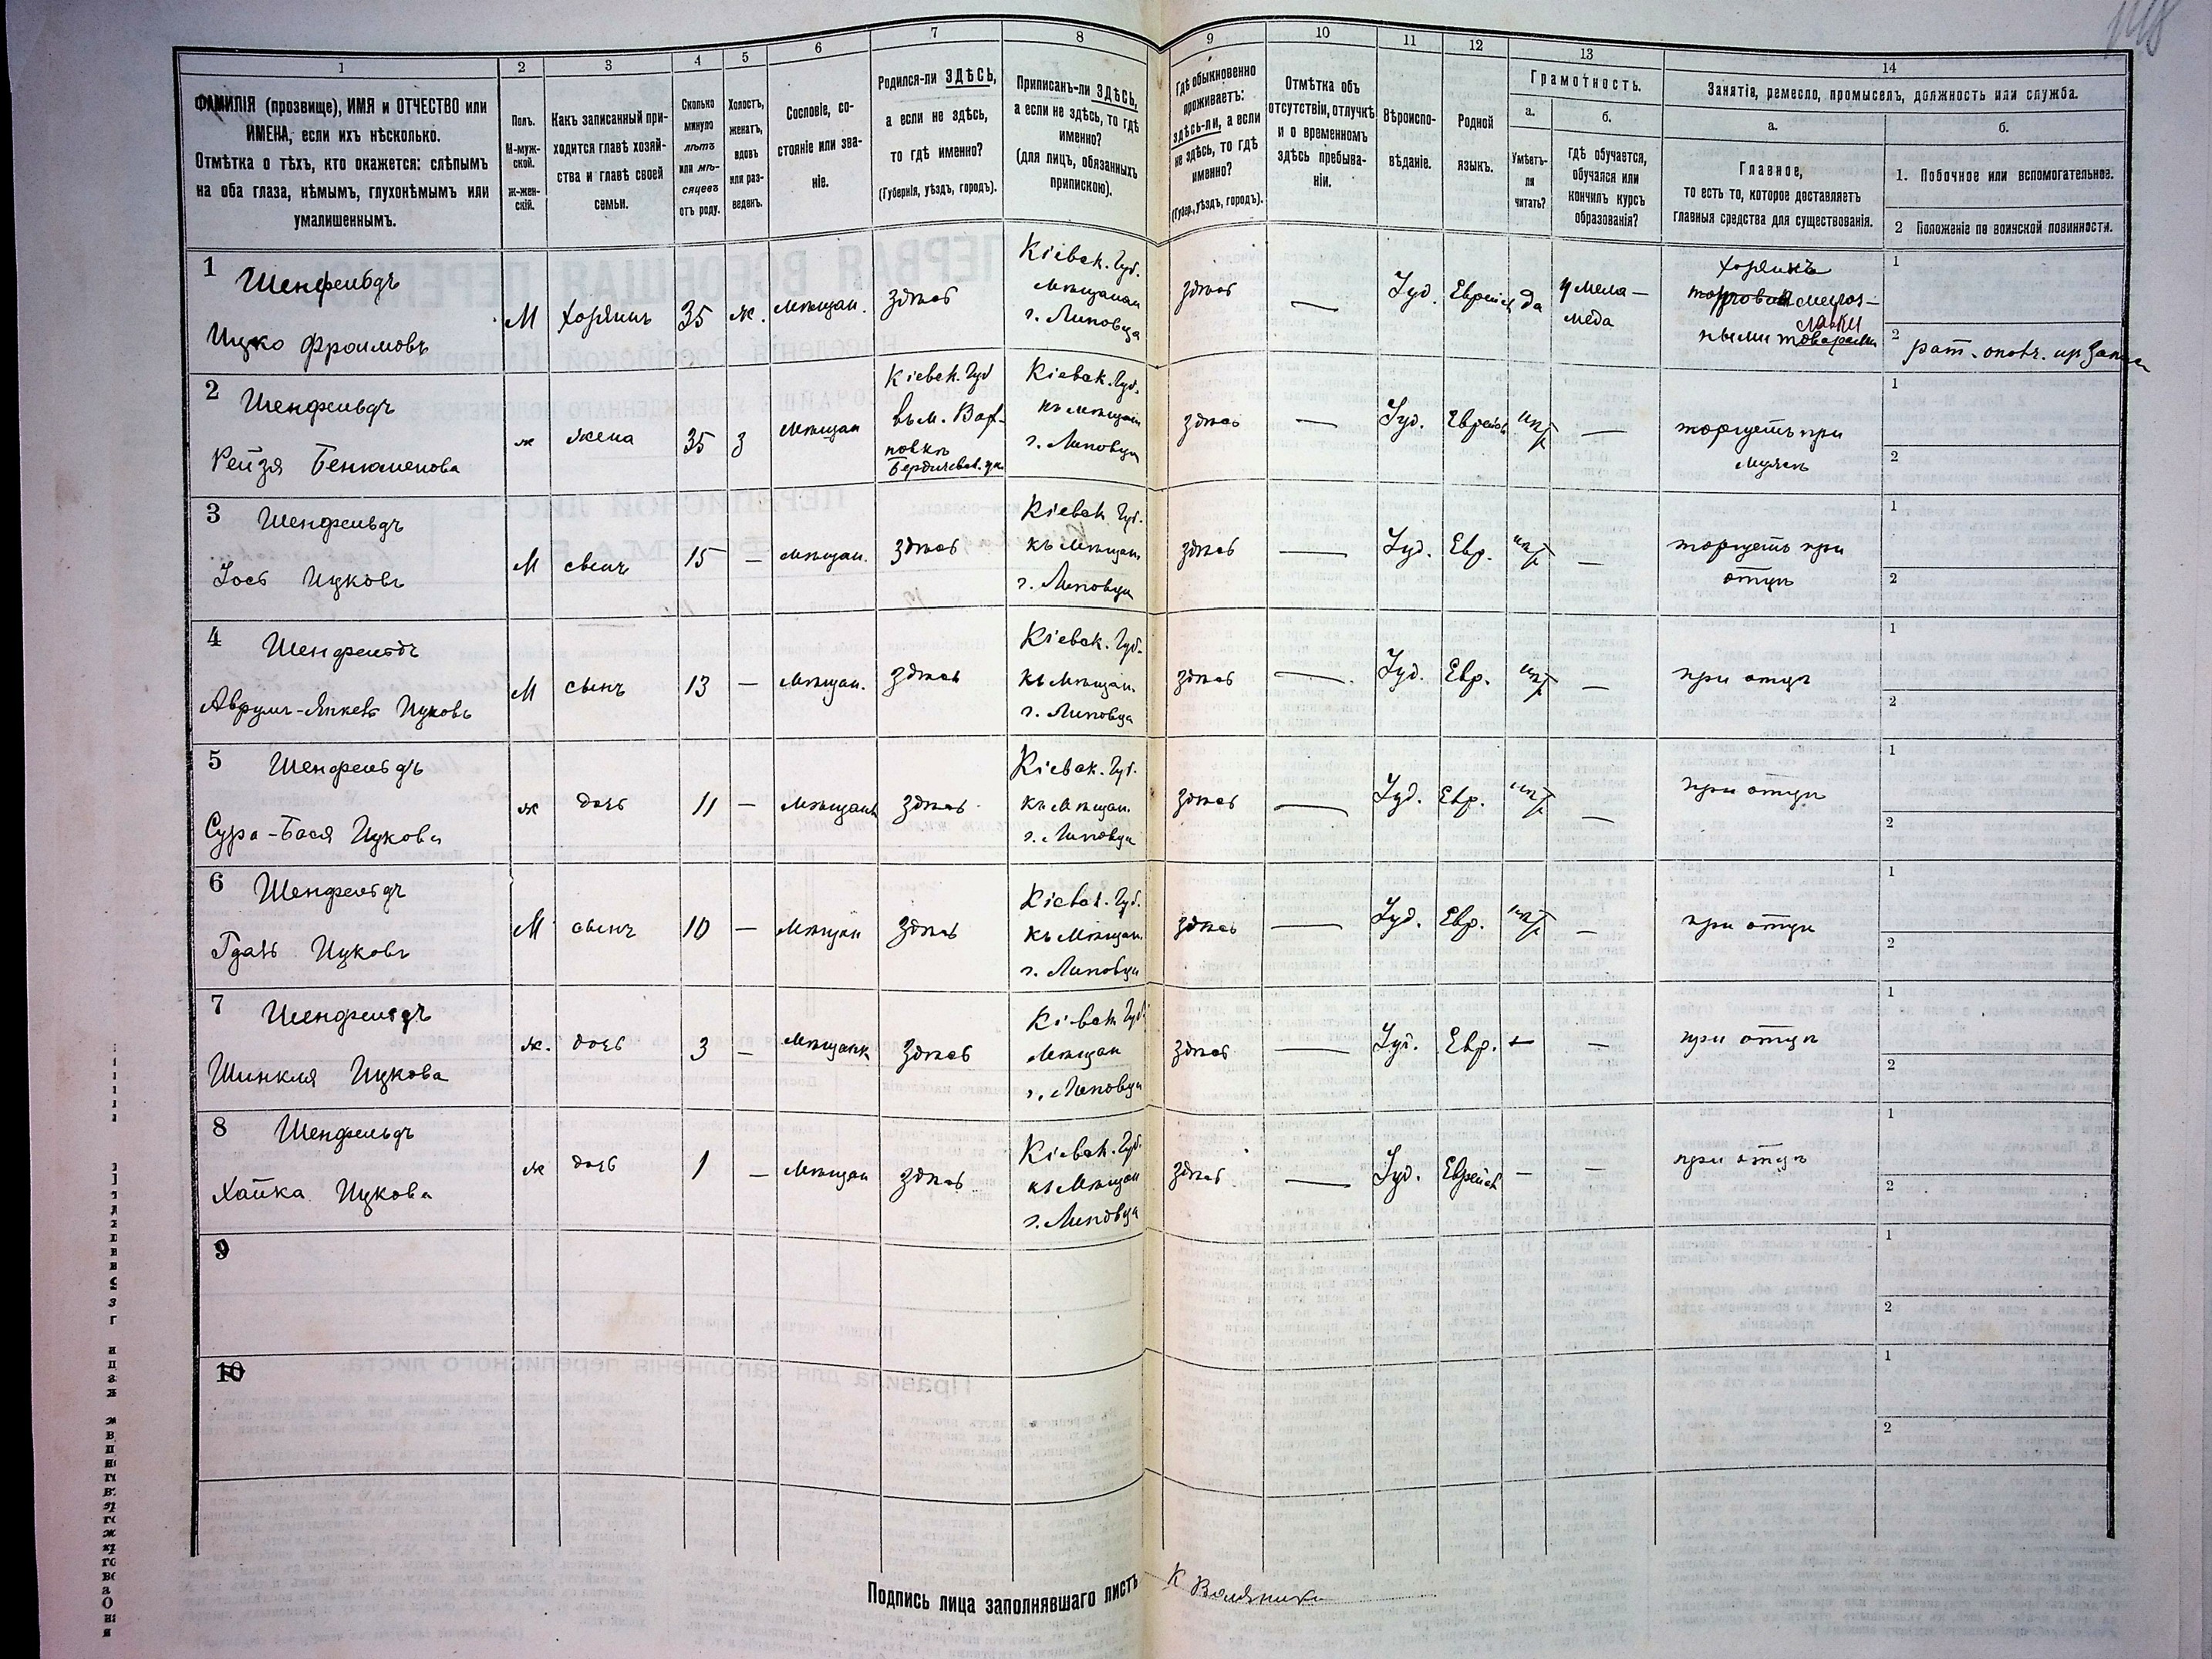 1 2 3 4 5 6 7 8 9 10 11 12 13 14
ФАМИЛІЯ (прозвище), ИМЯ и ОТЧЕСТВО или
ИМЕНА, если ихъ нѣсколько.
Отмѣтка о тѣхъ, кто окажется: слѣпымъ
на оба глаза, нѣмымъ, глухонѣмымъ или
умалишеннымъ.
Полъ.
М-муж-
ской.
Ж-жен-
скій.
Какъ записанный при-
ходится главѣ хозяй-
ства и главѣ своей
семьи.
Сколько
минуло
лѣтъ
или мѣ-
сяцевъ
отъ роду.
Холостъ,
женатъ,
вдовъ
или раз-
веденъ.
Сословіе, со-
стояніе или зва-
ніе.
Родился-ли ЗДѢСЬ,
а если не здѣсь,
то гдѣ именно?
(Губернія, уѣздъ, городъ).
Приписанъ-ли ЗДѢСЬ,
а если не здѣсь, то гдѣ
именно?
(для лицъ, обязанныхъ
припискою).
Гдѣ обыкновенно
проживаетъ:
здѣсь-ли, а если
не здѣсь, то гдѣ
именно?
(Губер., уѣздъ, городъ).
Отмѣтка объ
отсутствіи, отлучкѣ
и о временномъ
здѣсь пребыва-
ніи.
Вѣроиспо-
вѣданіе.
Родной
языкъ.
Грамотность.
а.
Умѣетъ-
ли
читать?
б.
гдѣ обучается,
обучался или
кончилъ курсъ
образованія?
Занятіе, ремесло, промыселъ, должность или служба.
а.
Главное,
то есть то, которое доставляетъ
главныя средства для существованія.
б.
1. Побочное или вспомогательное.
2 Положеніе по воинской повинности.
1 Шенфельдъ
Ицко Фроимовъ
М хозяинъ 35 ж. мѣщан. здѣсь
Кіевск. Губ.
мѣщанам
г. Липовца
здѣсь — Іуд. Еврейск да
у мела-
меда
хозяинъ
торговли мелоч-
ными товарами
лавки
1
2 рат. ополч.
2 Шенфельдъ
Рейзя Бенюменова
ж жена 35 з мѣщан
Кіевск. Губ
въ м.
Бердичевск. уѣз.
Кіевск. Губ.
къ мѣщан
г. Липовца
здѣсь — Іуд. Еврейск нѣт —
торгуетъ при
мужѣ
1
2
3 Шенфельдъ
Іось Ицковъ
М сынъ 15 — мѣщан. здѣсь
Кіевск. Губ.
къ мѣщан.
г. Липовца
здѣсь — Іуд. Евр. нѣт —
торгуетъ при
отцѣ
1
2
4 Шенфельдъ
Аврумъ-Янкевъ Ицковъ
М сынъ 13 — мѣщан. здѣсь
Кіевск. Губ.
къ мѣщан.
г. Липовца
здѣсь — Іуд. Евр. нѣт —
при отцѣ
1
2
5 Шенфельдъ
Сура-Бася Ицкова
ж дочь 11 — мѣщанк здѣсь
Кіевск. Губ.
къ мѣщан.
г. Липовца
здѣсь — Іуд. Евр. нѣт —
при отцѣ
1
2
6 Шенфельдъ
Ицковъ
М сынъ 10 — мѣщан здѣсь
Кіевск. Губ.
къ мѣщан.
г. Липовца
здѣсь — Іуд. Евр. нѣт —
при отцѣ
1
2
7 Шенфельдъ
Шинкля Ицкова
ж. дочь 3 — мѣщанк здѣсь
Кіевск Губ.
мѣщан
г. Липовца
здѣсь — Іуд. Евр. — —
при отцѣ
1
2
8 Шенфельдъ
Хайка Ицкова
ж дочь 1 — мѣщан здѣсь
Кіевск. Губ.
къ мѣщан
г. Липовца
здѣсь — Іуд. Еврейск — —
при отцѣ
1
2
9
1
2
10
1
2
Подпись лица заполнявшаго листъ К